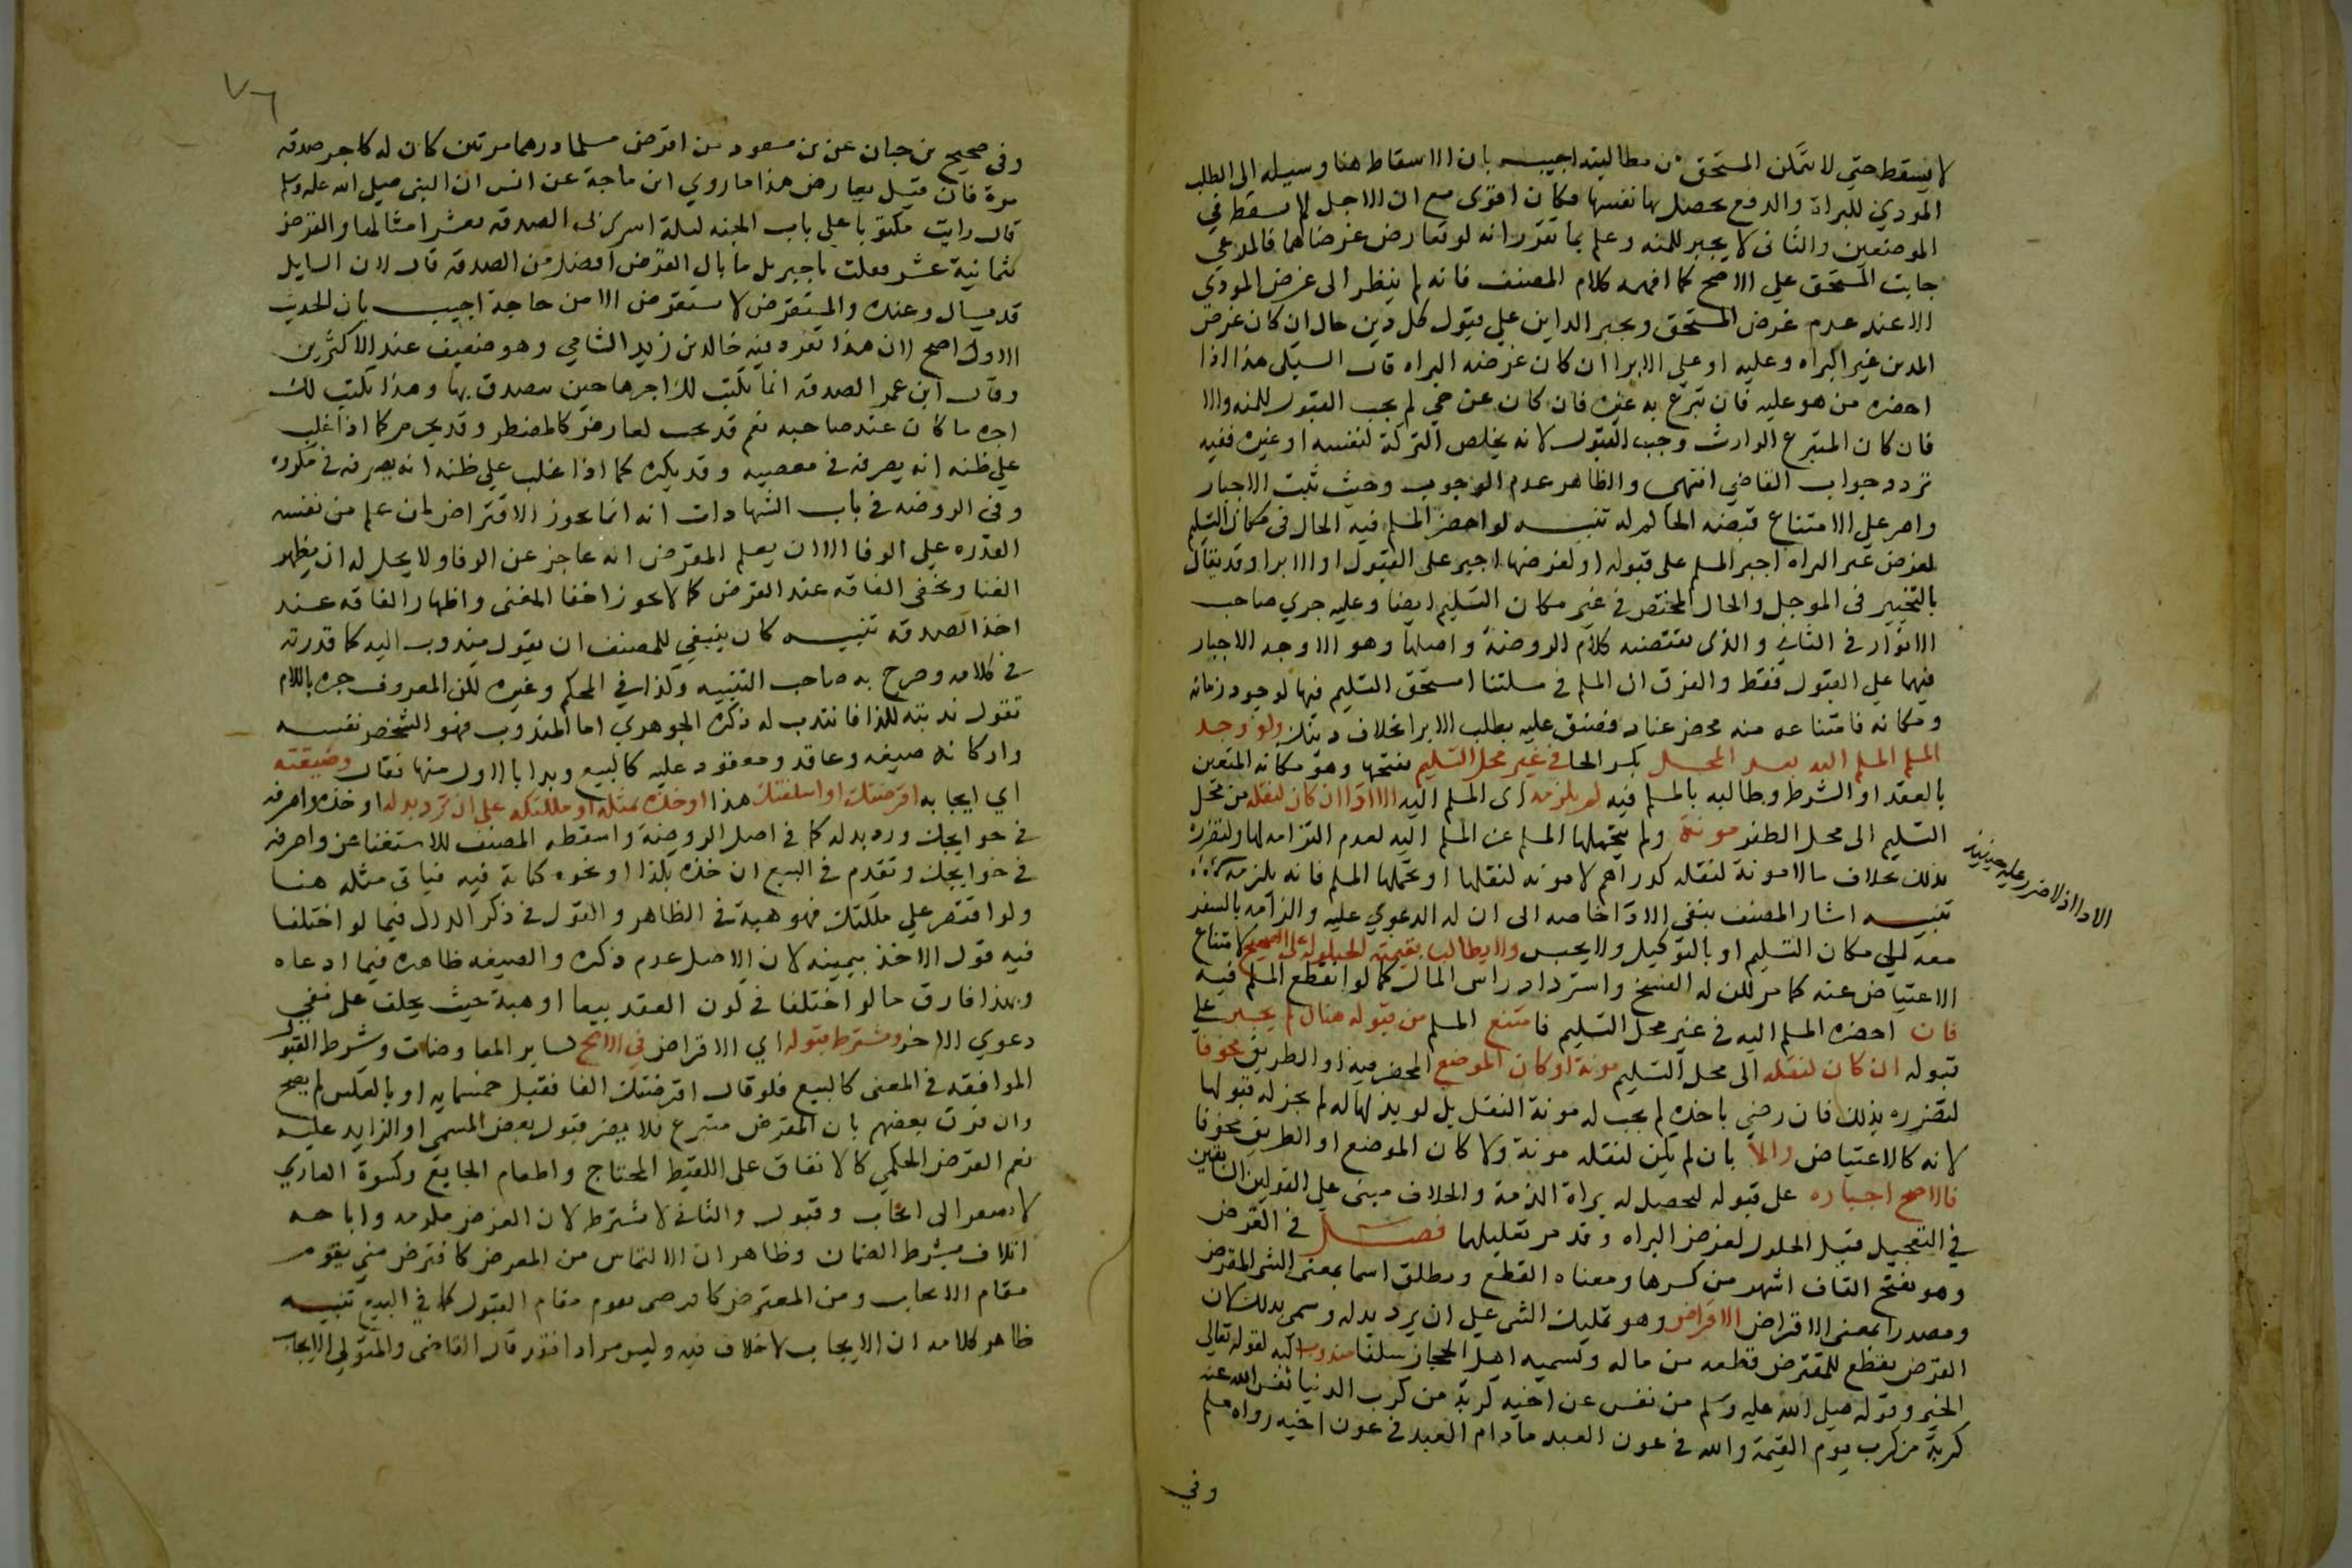 لا يسقط حتي لا يتمكن المستحق من مطالبته اجيب بان الاسقاط هنا وسيله الي الطلب
المودي للبراة والدفع يحصل بها نفسها فكان اقوي مع ان الاجل لا يسقط في
الموضعين والثاني لا يجبر للمنه وعلم بما تقرر انه لو تعارض غرضاهما فالمرعي
جانب المستحق علي الاصح كما افهمه كلام المصنف فانه لم ينظر الي غرض المودي
الا عند عدم غرض المستحق ويجبر الداين علي قبول كل دين حال ان كان غرض
المدين غير البراه وعليه او علي الابرا ان كان غرضه البراه قال السبكي هذا اذا
احضره من هو عليه فان تبرع به غيره فان كان عن حي لم يجب القبول للمنه والا
فان كان المتبرع الوارث وجب القبول لانه يخلص التركة لنفسه او غيره ففيه
تردد جواب القاضي انتهي والظاهر عدم الوجوب وحيث ثبت الاجبار
واصر علي الامتناع قبضه الحاكم له تنبيه لو احضر المسلم فيه الحال في مكان التسليم
لغرض غير البراه اجبر المسلم علي قبوله او لغرضها اجبر علي القبول او الابرا وقد يقال
بالتخيير في الموجل والحال المحضر في غير مكان التسليم ايضا وعليه جري صاحب
الانوار في الثاني والذي يقتضيه كلام الروضة واصلها وهو الاوجه الاجبار
فيهما علي القبول فقط والفرق ان المسلم في مسلتنا استحق التسليم فيها لوجود زمانه
ومكانه فامتناعه منه محض عناد فضيق عليه بطلب الابرا بخلاف دينك ولو وجد
المسلم المسلم اليه بعد المحل بكسر الحا في غير محل التسليم بفتحها وهو مكانه المتعين
بالعقد او الشرط وطالبه بالمسلم فيه لم يلزمه اي المسلم اليه الادا ان كان لنقله من محل
التسليم الي محل الظفر مونة ولم يتحملها المسلم عن المسلم اليه لعدم التزامه لها ولتضرره
بذلك بخلاف مالا مونة لنقله كدراهم لا مونه لنقلها او تحملها المسلم فانه يلزمه
الادا اذ لا ضرر عليه حينيذ
تنبيه اشار المصنف بنفي الادا خاصه الي ان له الدعوي عليه والزامه بالسفر
معه الي مكان التسليم او بالتوكيل ولا يحبس ولا يطالب بقيمته للحيلوله علي الصحيح لامتناع
الاعتياض عنه كما مر لكن له الفسخ واسترداد راس المال كما لو انقطع المسلم فيه
فان احضره المسلم اليه في غير محل التسليم فامتنع المسلم من قبوله هناك لم يجبر علي
قبوله ان كان لنقله الي محل التسليم مونة او كان الموضع المحضر فيه او الطريق مخوفا
لتضرره بذلك فان رضي باخذه لم يجب له مونة النقل بل لو بذلها له لم يجز له قبولها
لانه كالاعتياض والا بان لم يكن لنقله مونة ولا كان الموضع او الطريق مخوفا
فالاصح اجباره علي قبوله لتحصل له براة الذمة والخلاف مبني علي القولين السابقين
في التعجيل قبل الحلول لغرض البراه وقد مر تعليلهما فصل في القرض
وهو بفتح القاف اشهر من كسرها ومعناه القطع ويطلق اسما بمعني الشي المقرض
ومصدرا بمعني الاقراض الاقراض وهو تمليك الشي علي ان يرد بدله وسمي بذلك لان
القرض يقطع للمقترض قطعه من ماله وتسميه اهل الحجاز سلفا مندوب اليه لقوله تعالي
الخير وقوله صلي الله عليه وسلم من نفس عن اخيه كربة من كرب الدنيا نفس الله عنه
كربة من كرب يوم القيمة والله في عون العبد مادام العبد في عون اخيه رواه مسلم
وفي
٧٦
وفي صحيح بن حبان عن بن مسعود من اقرض مسلما درهما مرتين كان له كاجر صدقه
مرة فان قيل يعارض هذا ما روي ابن ماجة عن انس ان النبي صلي الله عليه وسلم
قال رايت مكتوبا علي باب الجنه ليلة اسري بي الصدقه بعشر امثالها والقرض
بثمانية عشر فقلت يا جبريل ما بال القرض افضل من الصدقه قال لان السايل
قد يسال وعنده والمستقرض لا يستقرض الا من حاجة اجيب بان الحديث
الاول اصح لان هذا تفرد به خالد بن زيد الشامي وهو ضعيف عند الاكثرين
وقال ابن عمر الصدقه انما يكتب لك اجرها حين تصدق بها وهذا يكتب لك
اجره ما كان عند صاحبه نعم قد يجب لعارض كالمضطر وقد يحرم كما اذا غلب
علي ظنه انه يصرفه في معصيه وقد يكره كما اذا غلب علي ظنه انه يصرفه في مكروه
وفي الروضه في باب الشهادات انه انما يجوز الاقتراض لمن علم من نفسه
القدره علي الوفا الا ان يعلم المقرض انه عاجز عن الوفا ولا يحل له ان يظهر
الغنا ويخفي الفاقه عند القرض كما لا يجوز اخفا الغني واظهار الفاقه عند
اخذ الصدقه تنبيه كان ينبغي للمصنف ان يقول مندوب اليه كما قدرته
في كلامه وصرح به صاحب التنبيه وكذا في المحكم وغيره لكن المعروف جره باللام
تقول ندبته لكذا فانتدب له ذكره الجوهري اما المندوب فهو الشخص نفسه
واركانه صيغه وعاقد ومعقود عليه كالبيع وبدا بالاول منها فقال وصيغته
اي ايجابه اقرضتك او اسلفتك هذا او خذه بمثله او ملكتكه علي ان ترد بدله او خذه واصرفه
في حوايجك ورد بدله كما في اصل الروضة واسقطه المصنف للاستغنا عن واصرفه
في حوايجك وتقدم في البيع ان خذه بكذا او نحوه كناية فيه فياتي مثله هنا
ولو اقتصر علي ملكتك فهو هبة في الظاهر والقول في ذكر البدل فيما لو اختلفا
فيه قول الاخذ بيمينه لان الاصل عدم ذكره والصيغه ظاهره فيما ادعاه
وبهذا فارق ما لو اختلفا في كون العقد بيعا او هبة حيث يحلف علي نفي
دعوي الاخر ويشترط قبوله اي الاقراض في الاصح كساير المعاوضات وشرط القبول
الموافقه في المعني كالبيع فلو قال اقرضتك الفا فقبل خمسمايه او بالعكس لم يصح
وان فرق بعضهم بان المقرض متبرع فلا يضر قبول بعض المسمي او الزايد عليه
نعم القرض الحكمي كالانفاق علي اللقيط المحتاج واطعام الجايع وكسوة العاري
لا يفتقر الي ايجاب وقبول والثاني لا يشترط لان القرض مكرمه واباحه
اتلاف بشرط الضمان وظاهر ان الالتماس من المقرض كاقترض مني يقوم
مقام الايجاب ومن المقترض كاقرضني يقوم مقام القبول كما في البيع تنبيه
ظاهر كلامه ان الايجاب لا خلاف فيه وليس مرادا فقد قال القاضي والمتولي الايجاب